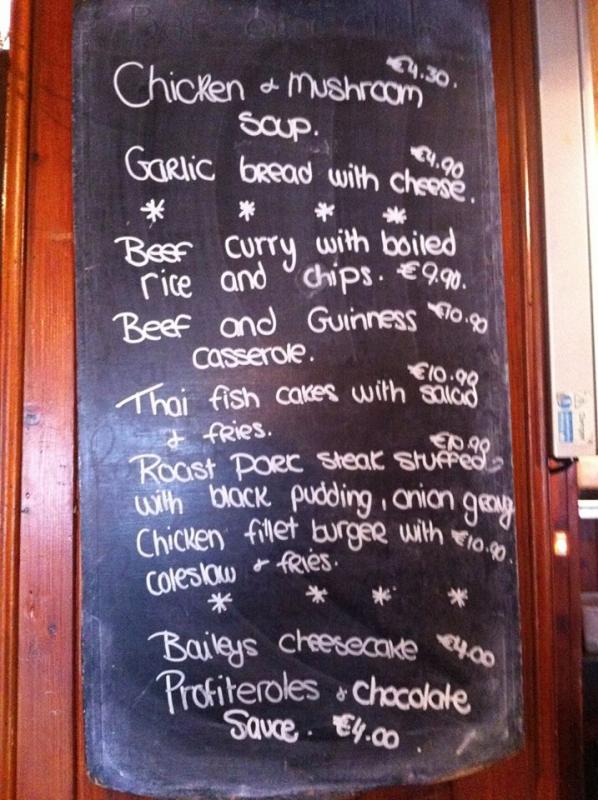 Chicken & Mushroom €4.30.
Soup.
Garlic bread with cheese. €4.90
* * * *
Beef curry with boiled
rice and chips. €9.90.
Beef and Guinness €10.90
casserole.
Thai fish cakes with salad €10.90
& fries.
Roast Pork steak stuffed €10.90
with black pudding, onion gravy
Chicken fillet burger with €10.90.
coleslaw & fries.
* * * *
Baileys cheesecake €4.00
Profiteroles & chocolate
Sauce. €4.00.